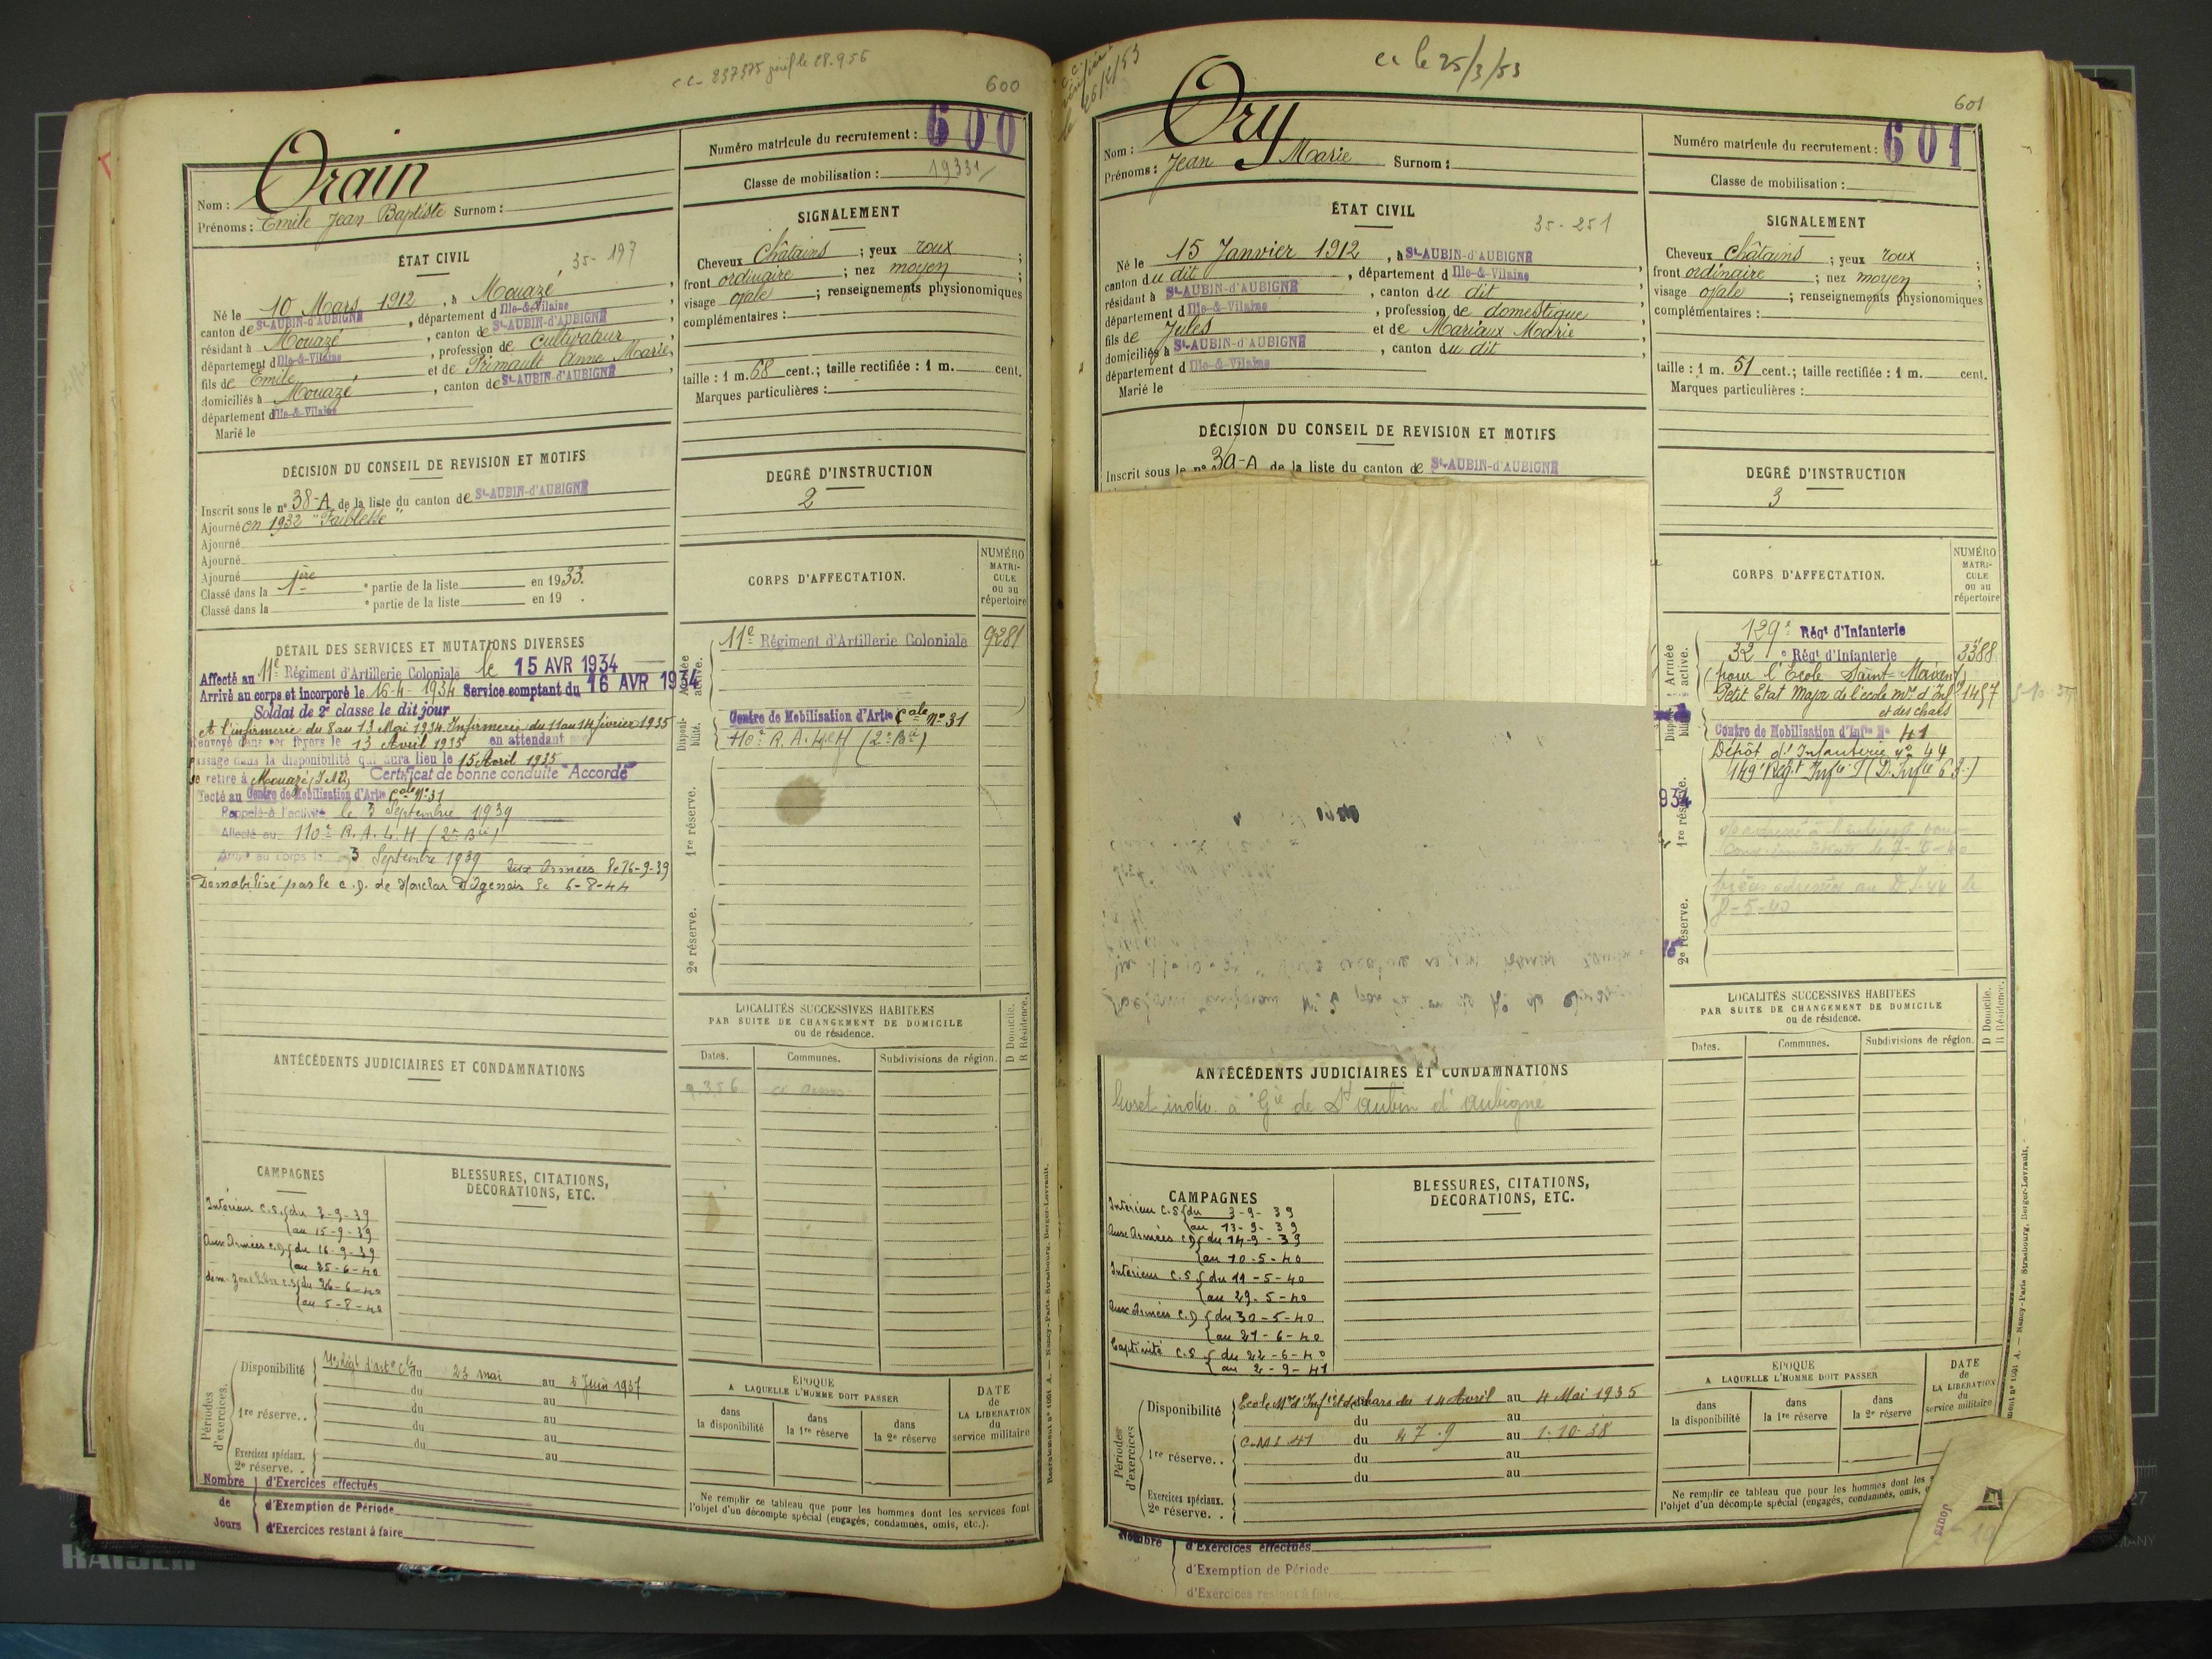 c.c. 237375 le 28.9.56
600
Orain
Nom :
Prénoms : Emile Jean Baptiste Surnom :
ÉTAT CIVIL
35-197
Né le 10 Mars 1912, à Mouazé,
canton de St-AUBIN-d'AUBIGNÉ, département d Ille-&-Vilaine,
résidant à Mouazé, canton de St-AUBIN-d'AUBIGNÉ,
département d Ille-&-Vilaine, profession de cultivateur,
fils de Emile et de Primault Anne Marie,
domiciliés à Mouazé, canton de St-AUBIN-d'AUBIGNÉ,
département d Ille-&-Vilaine
Marié le
DÉCISION DU CONSEIL DE REVISION ET MOTIFS
Inscrit sous le n° 38-A de la liste du canton de St-AUBIN-d'AUBIGNÉ
Ajourné en 1932 "Faiblesse"
Ajourné
Ajourné
Ajourné
Classé dans la 1ère e partie de la liste en 1933.
Classé dans la e partie de la liste en 19 .
DÉTAIL DES SERVICES ET MUTATIONS DIVERSES
Affecté au 11e Régiment d'Artillerie Coloniale le 15 AVR 1934
Arrivé au corps et incorporé le 16-4-1934 Service comptant du 16 AVR 1934
Soldat de 2e classe le dit jour
A l'infirmerie du 8 au 13 Mai 1934. Infirmerie du 11 au 14 février 1935
Renvoyé dans ses foyers le 13 Avril 1935 en attendant
passage dans la disponibilité qui aura lieu le 15 Avril 1935
se retire à Mouazé (I&V) Certificat de bonne conduite "Accordé"
fecté au Centre de Mobilisation d'Artie Cale N° 31
Rappelé à l'activité le 3 Septembre 1939
Affecté au 110e R.A.L.H (2e Bie)
Arrivé au corps le 3 Septembre 1939 Aux Armées le 16-9-39
Démobilisé par le c.d. de Monclar D'Agenais le 6-8-44
ANTÉCÉDENTS JUDICIAIRES ET CONDAMNATIONS
CAMPAGNES
Intérieur C.S. { du 3-9-39
{ au 15-9-39
Aux Armées C.D { du 16-9-39
{ au 25-6-40
dém. zone libre C.S { du 26-6-40
{ au 5-8-40
BLESSURES, CITATIONS,
DÉCORATIONS, ETC.
Périodes d'exercices.
Disponibilité 11e Régt d'Arte Cle du 23 mai au 5 Juin 1937
du au
1re réserve.. du au
du au
du au
Exercices spéciaux.
2e réserve. .
Nombre d'Exercices effectués
de d'Exemption de Période
Jours d'Exercices restant à faire
Numéro matricule du recrutement : 600
Classe de mobilisation : 1933/
SIGNALEMENT
Cheveux châtains ; yeux roux ;
front ordinaire ; nez moyen ;
visage ovale ; renseignements physionomiques
complémentaires :
taille : 1 m. 68 cent.; taille rectifiée : 1 m. cent.
Marques particulières :
DEGRÉ D'INSTRUCTION
2
CORPS D'AFFECTATION.
NUMÉRO
MATRI-
CULE
ou au
répertoire
Armée active.
11e Régiment d'Artillerie Coloniale 9281
Disponi-
bilité.
Centre de Mobilisation d'Artie Cale N° 31
110e R.A.L.H (2e Bie)
1re réserve.
2e réserve.
LOCALITÉS SUCCESSIVES HABITÉES
PAR SUITE DE CHANGEMENT DE DOMICILE
ou de résidence.
D Domicile.
R Résidence.
Dates. Communes. Subdivisions de région.
9.3.56
ÉPOQUE
A LAQUELLE L'HOMME DOIT PASSER
DATE
de
LA LIBÉRATION
du
service militaire
dans
la disponibilité
dans
la 1re réserve
dans
la 2e réserve
Ne remplir ce tableau que pour les hommes dont les services font
l'objet d'un décompte spécial (engagés, condamnés, omis, etc.).
Recrutement n° 1661 A. — Nancy-Paris-Strasbourg, Berger-Levrault.
c.c.
vérifié
le 26/2/53
cc le 25/3/53
601
Ory
Nom :
Prénoms : Jean Marie Surnom :
ÉTAT CIVIL
35-251
Né le 15 Janvier 1912, à St-AUBIN-d'AUBIGNÉ
canton du dit, département d Ille-&-Vilaine,
résidant à St-AUBIN-d'AUBIGNÉ, canton du dit,
département d Ille-&-Vilaine, profession de domestique,
fils de Jules et de Mariaux Marie,
domiciliés à St-AUBIN-d'AUBIGNÉ, canton du dit,
département d Ille-&-Vilaine
Marié le
DÉCISION DU CONSEIL DE REVISION ET MOTIFS
Inscrit sous le n° 39-A de la liste du canton de St-AUBIN-d'AUBIGNÉ
ANTÉCÉDENTS JUDICIAIRES ET CONDAMNATIONS
livret indiv. à Gie de St Aubin d'Aubigné
CAMPAGNES
Intérieur C.S { du 3-9-39
{ au 13-9-39
Aux Armées C.D { du 14-9-39
{ au 10-5-40
Intérieur C.S { du 11-5-40
{ au 29-5-40
Aux Armées C.D { du 30-5-40
{ au 21-6-40
Captivité C.S { du 22-6-40
{ au 2-9-41
BLESSURES, CITATIONS,
DÉCORATIONS, ETC.
Périodes d'exercices
Disponibilité Ecole Mre d'Infie et des chars du 14 Avril au 4 Mai 1935
du au
1re réserve.. C.M.I. 41 du 27.9 au 1.10.38
du au
du au
Exercices spéciaux.
2e réserve. .
Nombre d'Exercices effectués
d'Exemption de Période
d'Exercices restant à faire
Numéro matricule du recrutement : 601
Classe de mobilisation :
SIGNALEMENT
Cheveux châtains ; yeux roux ;
front ordinaire ; nez moyen ;
visage ovale ; renseignements physionomiques
complémentaires :
taille : 1 m. 51 cent.; taille rectifiée : 1 m. cent.
Marques particulières :
DEGRÉ D'INSTRUCTION
3
CORPS D'AFFECTATION.
NUMÉRO
MATRI-
CULE
ou au
répertoire
Armée active.
129e Régt d'Infanterie
32e Régt d'Infanterie 3388
(pour l'Ecole Saint-Maixent)
Petit Etat Major de l'école mre d'Infie 1457
et des chars
Centre de Mobilisation d'Infie N° 41
Dépôt d'Infanterie n° 44
149e Régt Infie (D. Infie 63)
934
1re réserve.
le 8-5-40
2e réserve.
LOCALITÉS SUCCESSIVES HABITÉES
PAR SUITE DE CHANGEMENT DE DOMICILE
ou de résidence.
D Domicile.
R Résidence.
Dates. Communes. Subdivisions de région.
ÉPOQUE
A LAQUELLE L'HOMME DOIT PASSER
DATE
de
LA LIBÉRATION
du
service militaire
dans
la disponibilité
dans
la 1re réserve
dans
la 2e réserve
Ne remplir ce tableau que pour les hommes dont les
l'objet d'un décompte spécial (engagés, condamnés, omis,
Jours
Nancy-Paris-Strasbourg, Berger-Levrault.
KAISER